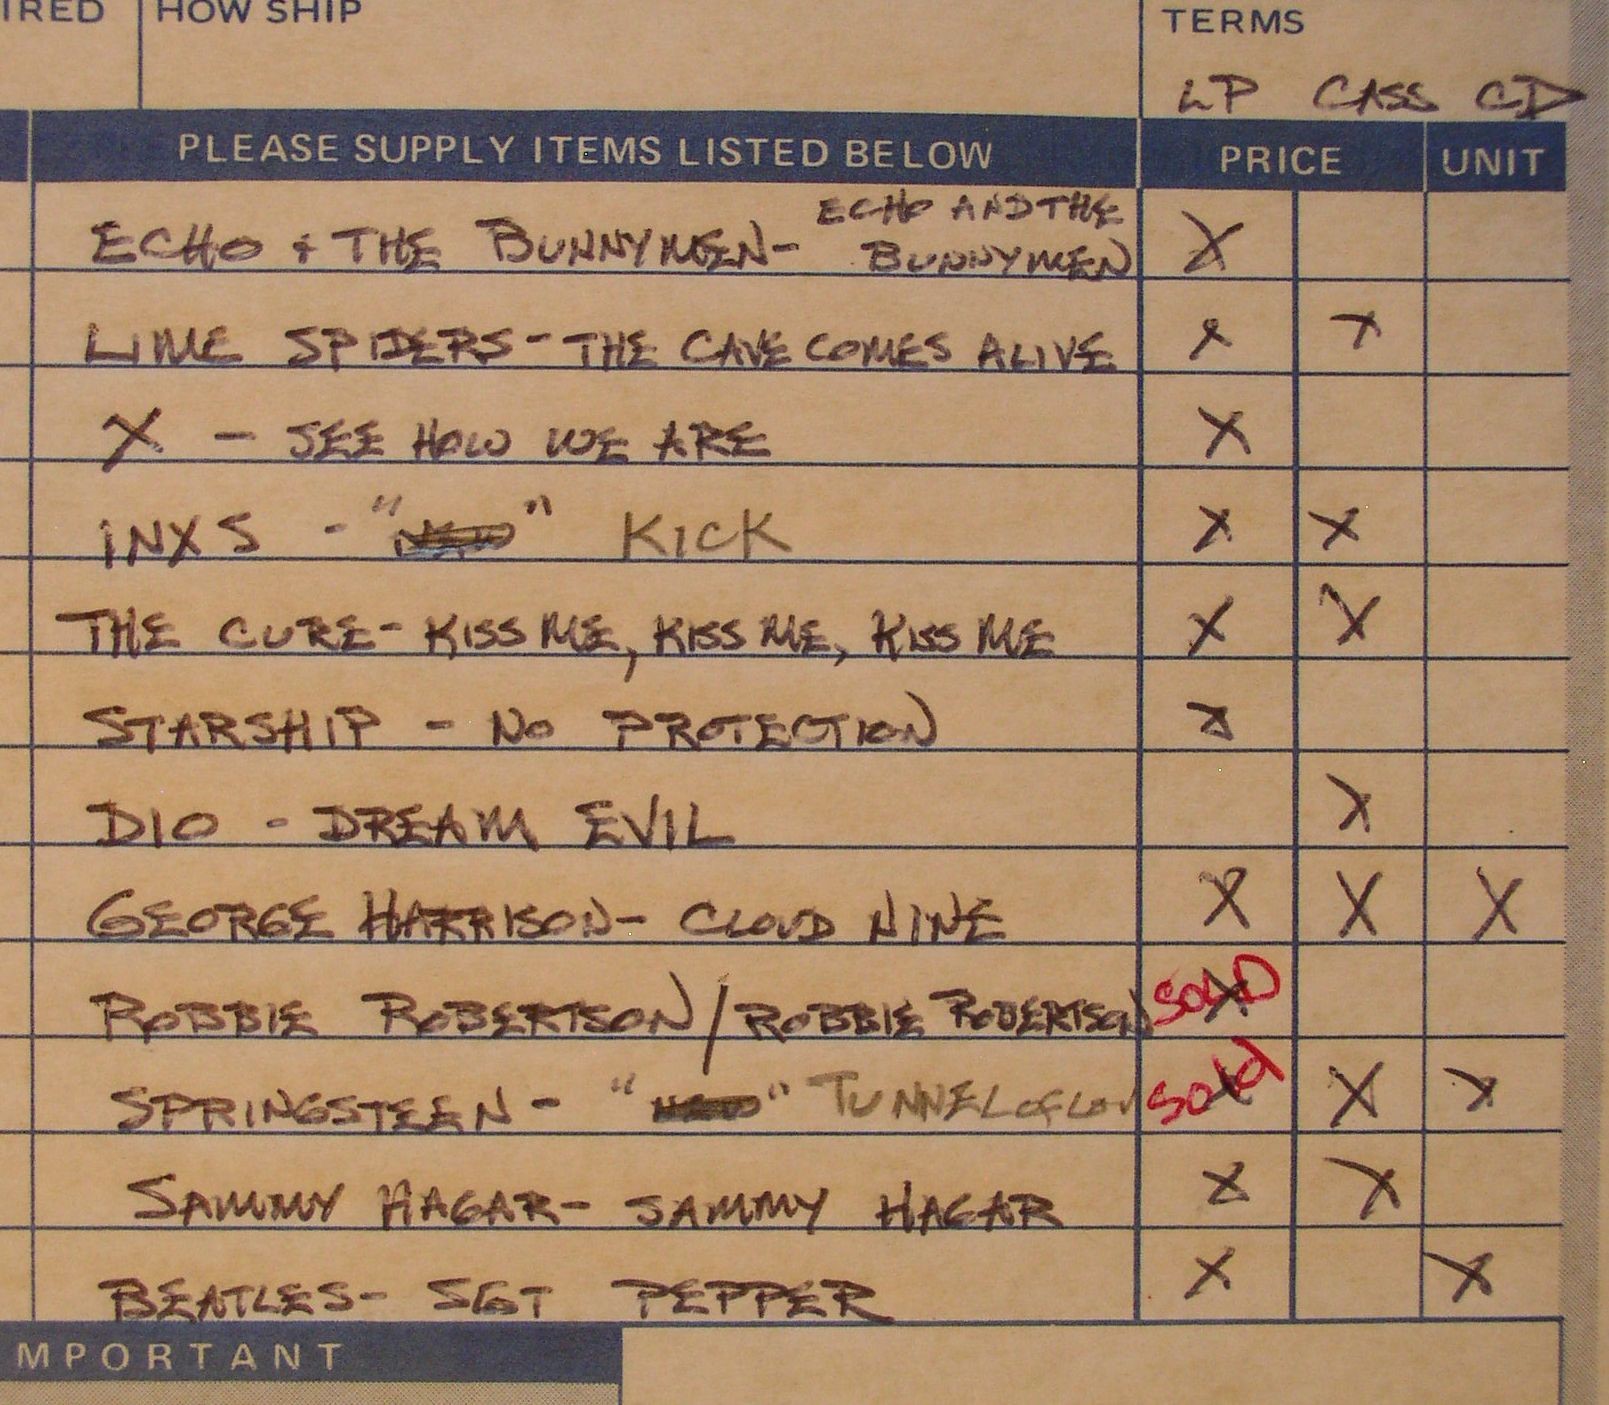 IRED HOW SHIP TERMS
LP CASS CD
PLEASE SUPPLY ITEMS LISTED BELOW PRICE UNIT
ECHO + THE BUNNYMEN- ECHO AND THE BUNNYMEN X
LIME SPIDERS - THE CAVE COMES ALIVE X X
X - SEE HOW WE ARE X
INXS - " " KICK X X
THE CURE - KISS ME, KISS ME, KISS ME X X
STARSHIP - NO PROTECTION X
DIO - DREAM EVIL X
GEORGE HARRISON - CLOUD NINE X X X
ROBBIE ROBERTSON / ROBBIE ROBERTSON X SOLD
SPRINGSTEEN - " " TUNNEL OF LOV X Sold X X
SAMMY HAGAR - SAMMY HAGAR X X
BEATLES - SGT PEPPER X X
MPORTANT